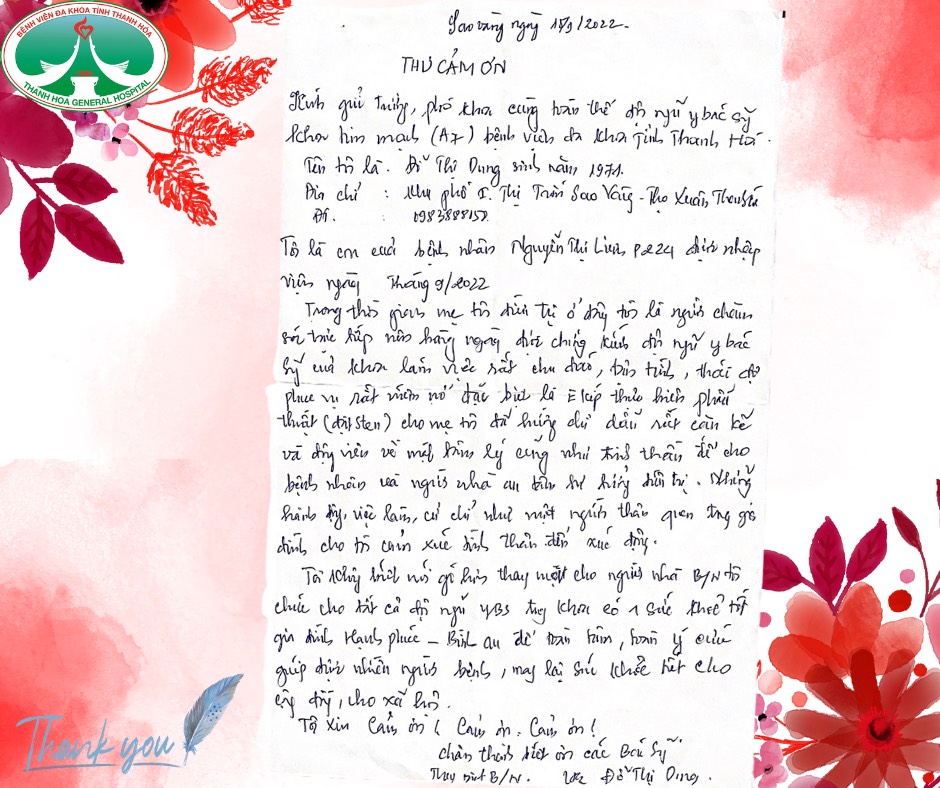 BỆNH VIỆN ĐA KHOA TỈNH THANH HÓA
THANH HOA GENERAL HOSPITAL
Sao vàng ngày 15/9/2022.
THƯ CẢM ƠN
Kính gửi trưởng, phó khoa cùng toàn thể đội ngũ y bác sỹ
khoa tim mạch (A7) bệnh viện đa khoa Tỉnh Thanh Hoá.
Tên tôi là. Đỗ Thị Dung sinh năm 1971.
Địa chỉ : Khu phố I. Thị Trấn Sao Vàng - Thọ Xuân Thanh Hoá
ĐT. : 0983888158.
Tôi là con của bệnh nhân Nguyễn Thị Liên P224 được nhập
viện ngày Tháng 9/2022
Trong thời gian mẹ tôi điều trị ở đây tôi là người chăm
sóc trực tiếp nên hàng ngày được chứng kiến đội ngũ y bác
sỹ của khoa làm việc rất chu đáo, tận tình, thái độ
phục vụ rất niềm nở đặc biệt là Ekíp thực hiện phẫu
thuật (đặt Sten) cho mẹ tôi đã hướng dẫn rất cặn kẽ
và động viên về mặt tâm lý cũng như tinh thần để cho
bệnh nhân và người nhà an tâm tư tưởng điều trị. Những
hành động, việc làm, cử chỉ như một người thân quen trong gia
đình cho tôi cảm xúc thân đến xúc động.
Tôi không biết nói gì hơn thay mặt cho người nhà B/N tôi
chúc cho tất cả đội ngũ YBS trong khoa có 1 sức khoẻ tốt
gia đình Hạnh phúc - Bình an để toàn tâm, toàn ý cứu
giúp được nhiều người bệnh, mang lại sức khoẻ tốt cho
cộng đồng, cho xã hội.
Tôi Xin Cảm ơn! Cảm ơn. Cảm ơn!
Chân thành biết ơn các Bác Sỹ
Thay mặt B/N. Đỗ Thị Dung.
Thank you